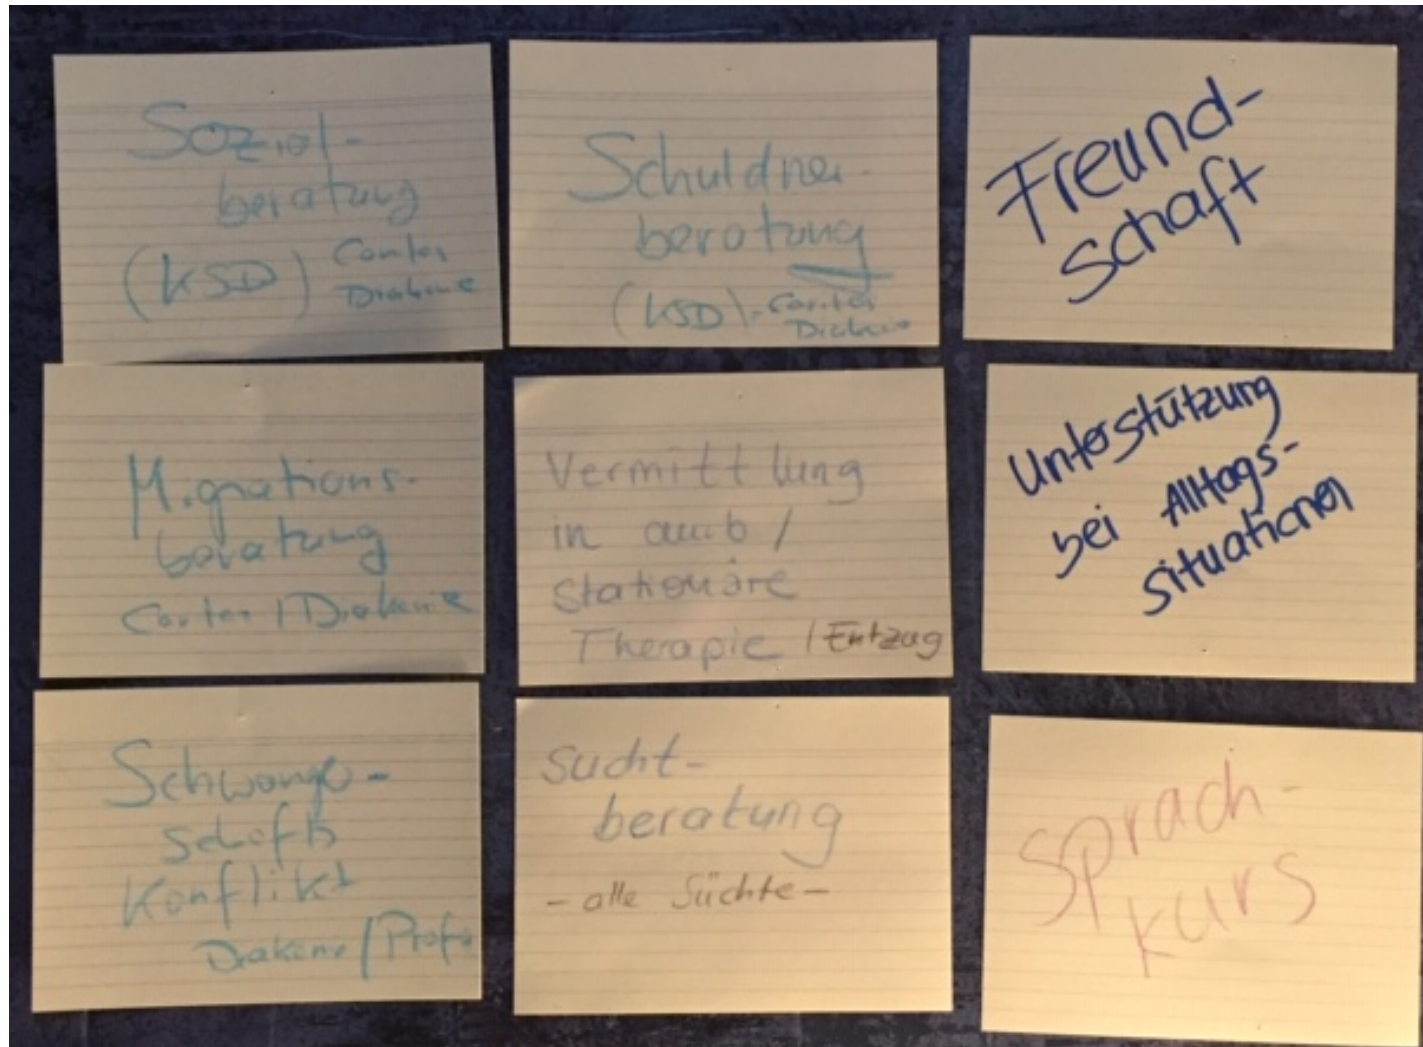 Sozial-
beratung
(KSD) Caritas
Diakonie
Schuldner-
beratung
(KSD) - Caritas
Diakonie
Freund-
schaft
Migrations-
beratung
Caritas / Diakonie
Vermittlung
in amb /
Stationäre
Therapie / Entzug
Unterstützung
bei Alltags-
situationen
Schwanger-
schafts
Konflikt
Diakonie / Profa
Sucht-
beratung
- alle Süchte -
Sprach-
kurs